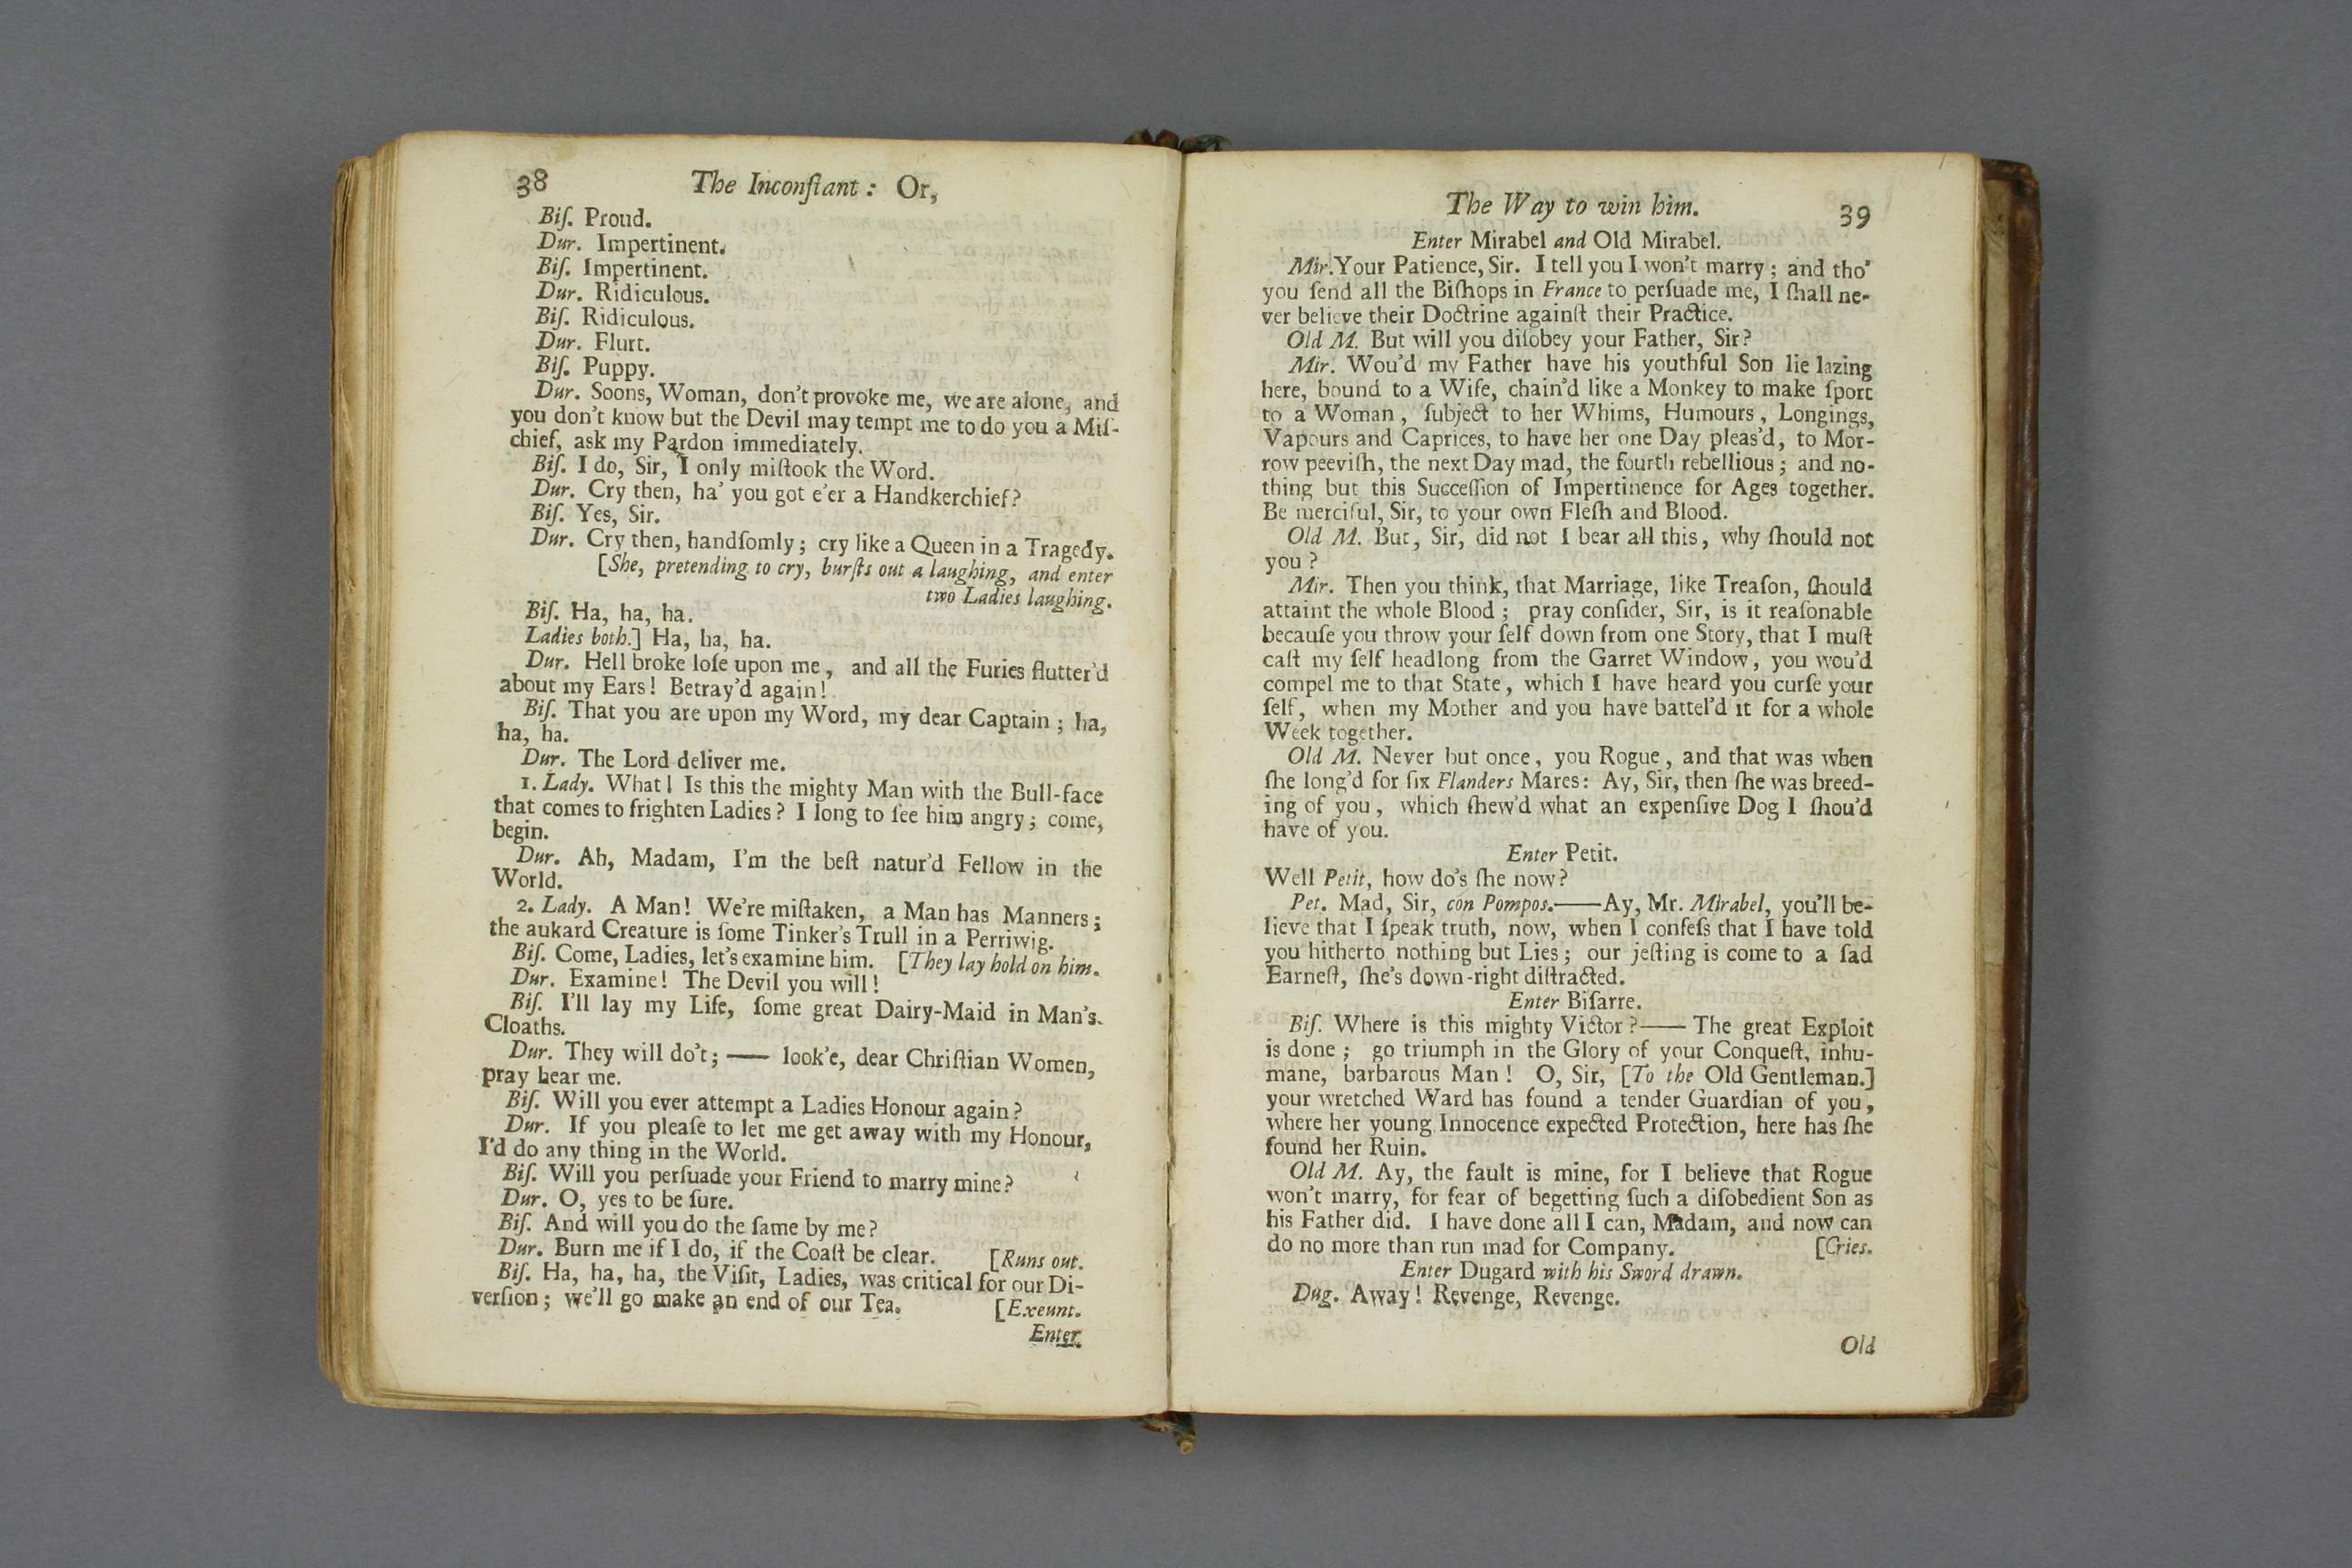 38 The Inconſtant: Or,
Biſ. Proud.
Dur. Impertinent.
Biſ. Impertinent.
Dur. Ridiculous.
Biſ. Ridiculous.
Dur. Flurt.
Biſ. Puppy.
Dur. Soons, Woman, don't provoke me, we are alone, and
you don't know but the Devil may tempt me to do you a Miſ-
chief, ask my Pardon immediately.
Biſ. I do, Sir, I only miſtook the Word.
Dur. Cry then, ha' you got e'er a Handkerchief?
Biſ. Yes, Sir.
Dur. Cry then, handſomly; cry like a Queen in a Tragedy.
[She, pretending to cry, burſts out a laughing, and enter
two Ladies laughing.
Biſ. Ha, ha, ha.
Ladies both.] Ha, ha, ha.
Dur. Hell broke loſe upon me, and all the Furies flutter'd
about my Ears! Betray'd again!
Biſ. That you are upon my Word, my dear Captain; ha,
ha, ha.
Dur. The Lord deliver me.
1. Lady. What! Is this the mighty Man with the Bull-face
that comes to frighten Ladies? I long to ſee him angry; come,
begin.
Dur. Ah, Madam, I'm the beſt natur'd Fellow in the
World.
2. Lady. A Man! We're miſtaken, a Man has Manners;
the aukard Creature is ſome Tinker's Trull in a Perriwig.
Biſ. Come, Ladies, let's examine him. [They lay hold on him.
Dur. Examine! The Devil you will!
Biſ. I'll lay my Life, ſome great Dairy-Maid in Man's
Cloaths.
Dur. They will do't; —— look'e, dear Chriſtian Women,
pray hear me.
Biſ. Will you ever attempt a Ladies Honour again?
Dur. If you pleaſe to let me get away with my Honour,
I'd do any thing in the World.
Biſ. Will you perſuade your Friend to marry mine?
Dur. O, yes to be ſure.
Biſ. And will you do the ſame by me?
Dur. Burn me if I do, if the Coaſt be clear. [Runs out.
Biſ. Ha, ha, ha, the Viſit, Ladies, was critical for our Di-
verſion; we'll go make an end of our Tea. [Exeunt.
Enter
The Way to win him. 39
Enter Mirabel and Old Mirabel.
Mir. Your Patience, Sir. I tell you I won't marry; and tho'
you ſend all the Biſhops in France to perſuade me, I ſhall ne-
ver believe their Doctrine againſt their Practice.
Old M. But will you diſobey your Father, Sir?
Mir. Wou'd my Father have his youthful Son lie lazing
here, bound to a Wife, chain'd like a Monkey to make ſport
to a Woman, ſubject to her Whims, Humours, Longings,
Vapours and Caprices, to have her one Day pleas'd, to Mor-
row peeviſh, the next Day mad, the fourth rebellious; and no-
thing but this Succeſſion of Impertinence for Ages together.
Be merciful, Sir, to your own Fleſh and Blood.
Old M. But, Sir, did not I bear all this, why ſhould not
you?
Mir. Then you think, that Marriage, like Treaſon, ſhould
attaint the whole Blood; pray conſider, Sir, is it reaſonable
becauſe you throw your ſelf down from one Story, that I muſt
caſt my ſelf headlong from the Garret Window, you wou'd
compel me to that State, which I have heard you curſe your
ſelf, when my Mother and you have battel'd it for a whole
Week together.
Old M. Never but once, you Rogue, and that was when
ſhe long'd for ſix Flanders Mares: Ay, Sir, then ſhe was breed-
ing of you, which ſhew'd what an expenſive Dog I ſhou'd
have of you.
Enter Petit.
Well Petit, how do's ſhe now?
Pet. Mad, Sir, con Pompos.——Ay, Mr. Mirabel, you'll be-
lieve that I ſpeak truth, now, when I confeſs that I have told
you hitherto nothing but Lies; our jeſting is come to a ſad
Earneſt, ſhe's down-right diſtracted.
Enter Biſarre.
Biſ. Where is this mighty Victor?—— The great Exploit
is done; go triumph in the Glory of your Conqueſt, inhu-
mane, barbarous Man! O, Sir, [To the Old Gentleman.]
your wretched Ward has found a tender Guardian of you,
where her young Innocence expected Protection, here has ſhe
found her Ruin.
Old M. Ay, the fault is mine, for I believe that Rogue
won't marry, for fear of begetting ſuch a diſobedient Son as
his Father did. I have done all I can, Madam, and now can
do no more than run mad for Company. [Cries.
Enter Dugard with his Sword drawn.
Dug. Away! Revenge, Revenge.
Old